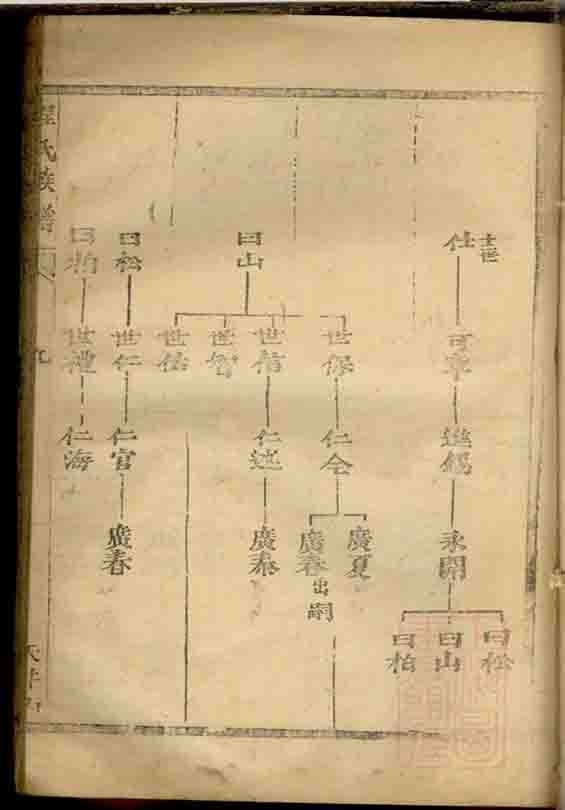 士世
仕
進錫
永開
曰松
曰山
曰柏
曰山
世保
世信
世智
仁会
仁述
廣夏
廣春出嗣
廣泰
曰松
世仁
仁官
廣春
曰柏
世禮
仁海
程氏族譜
九